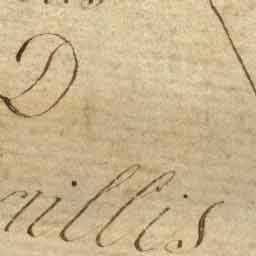 D
nillis